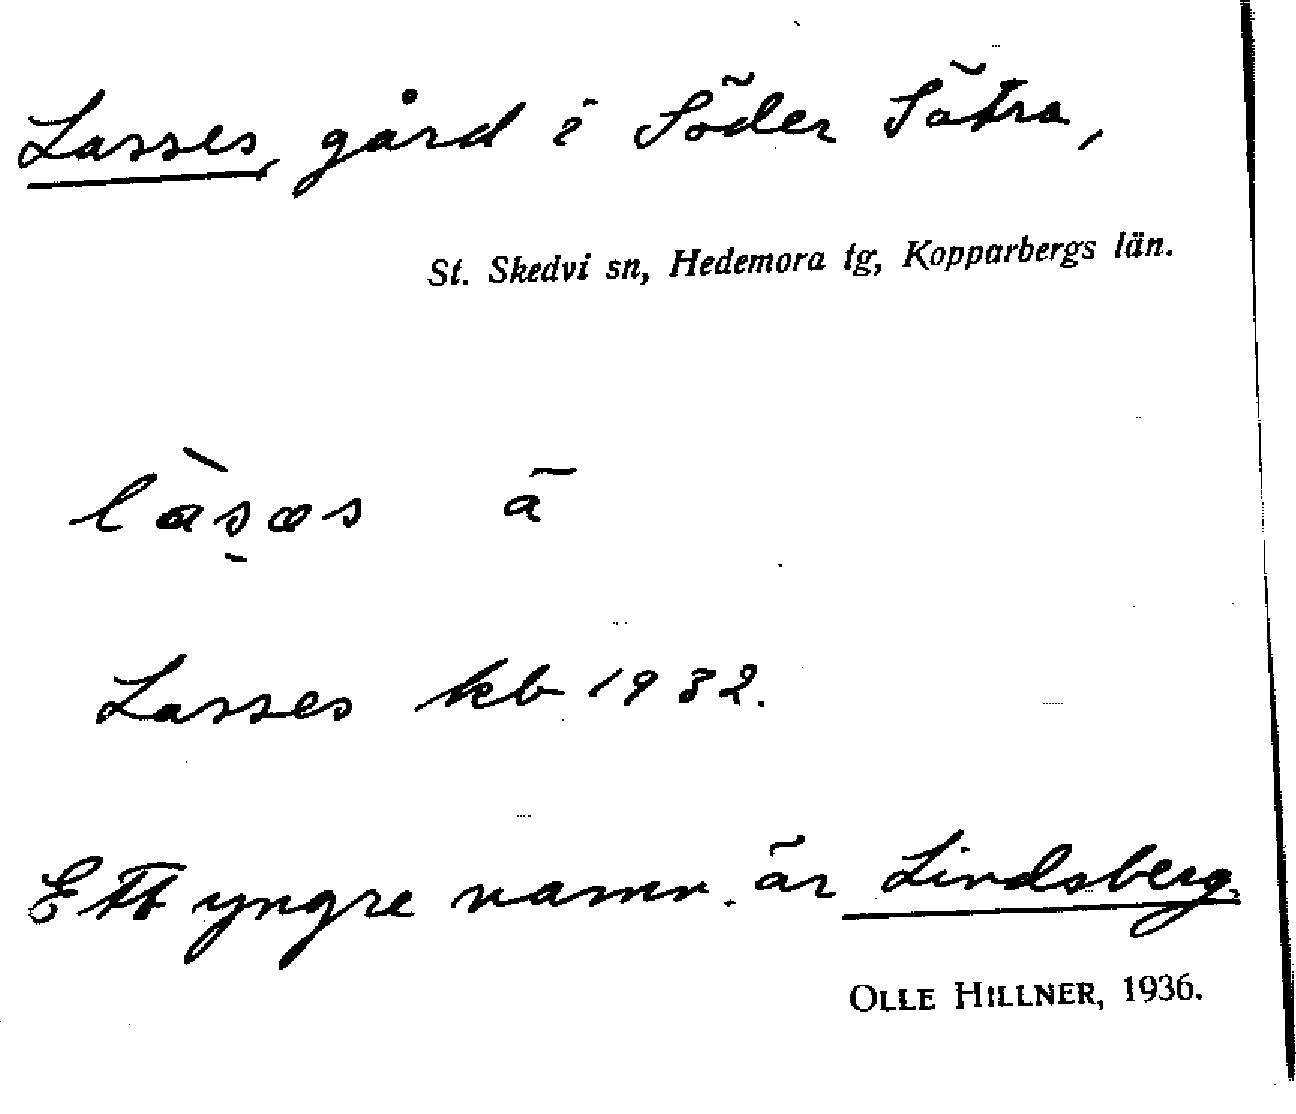 Lasses, gård i Söder Sätra,
St. Skedvi sn, Hedemora tg, Kopparbergs län.
làs̠æs ä
Lasses kb 1932.
Ett yngre namn är Lindsberg.
OLLE HILLNER, 1936.